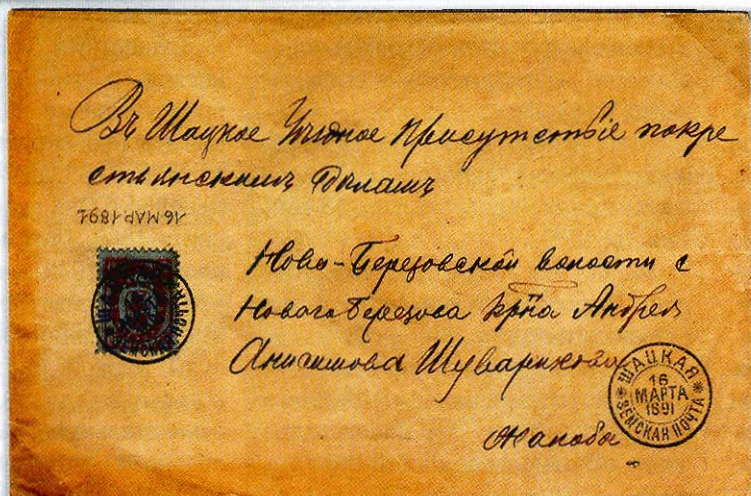 Въ Шацкое Уѣздное Присутствіе покре
стьянскимъ Дѣламъ
16 МАР. 1891
Ново-Березовской волости с
Новаго Березова крⷭ҇на Андрея
Анисимова Шуварикова
ШАЦКАЯ
16
МАРТА
1891
ЗЕМСКАЯ ПОЧТА
Жалоба